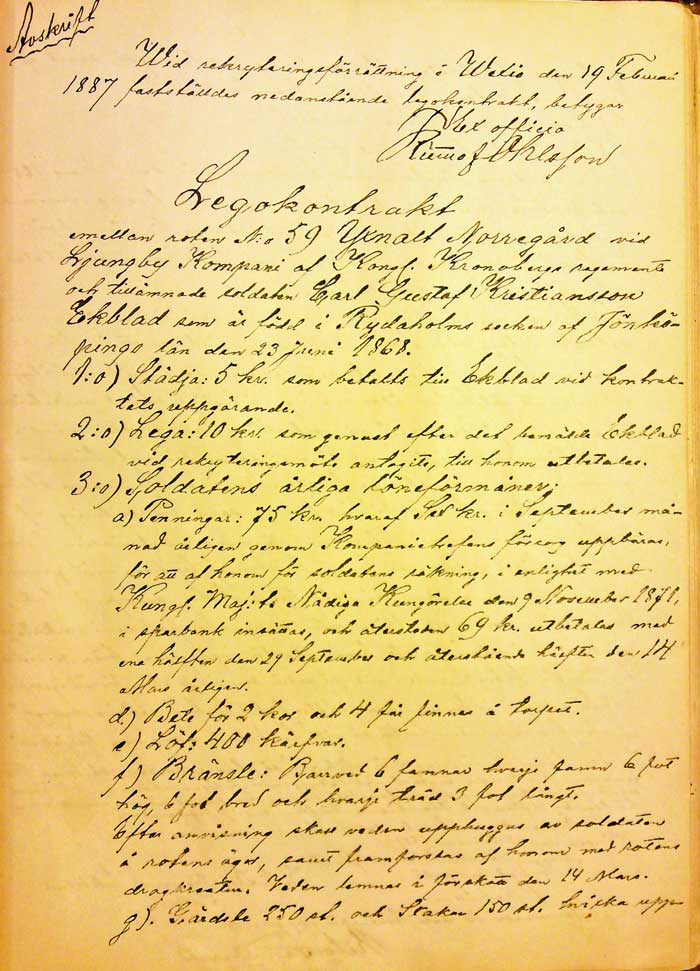 Avskrift
Wid rekryteringsförrättning i Wexio den 19 Februari
1887 fastställdes nedanstående legokontrakt, betygar
Ex officio
Ohlsson
Legokontrakt
emellan roten N:o 59 Yxnalt Norregård vid
Ljungby Kompani af Kongl. Kronobergs regemente
och tillämnade soldaten Carl Gustaf Kristiansson
Ekblad som är född i Rydaholms socken af Jönkö-
pings län den 23 Juni 1868.
1:o) Städja: 5 kr. som betalts till Ekblad vid kontrak-
tets uppgörande.
2:o) Lega: 10 kr. som genast efter det bemälde Ekblad
vid rekryteringsmöte antagits, till honom utbetalas.
3:o) Soldatens årliga löneförmåner;
a) Penningar: 75 kr. hvaraf Sex kr. i September må-
nad årligen genom Kompanichefens försorg uppbäras,
för att af honom för soldatens räkning, i enlighet med
Kungl. Maj:ts Nådiga Kungörelse den 9 November 1871,
i sparbank insättas, och återstoden 69 kr. utbetalas med
ena hälften den 29 September och återstående hälften den 14
Mars årligen.
d.) Bete för 2 kor och 4 får finnes å torpet.
e) Löf: 400 kärfvar.
f) Bränsle: Barrved 6 famnar hvarje famn 6 fot
hög, 6 fot bred och hvarje träd 3 fot långt.
Efter anvisning skall veden upphuggas av soldaten
å rotens ägor, samt framforslas af honom med rotens
dragkreatur. Veden lemnas i förskott den 14 Mars.
g). Gärdsle 250 st. och Stakar 150 st. hvilka upp-